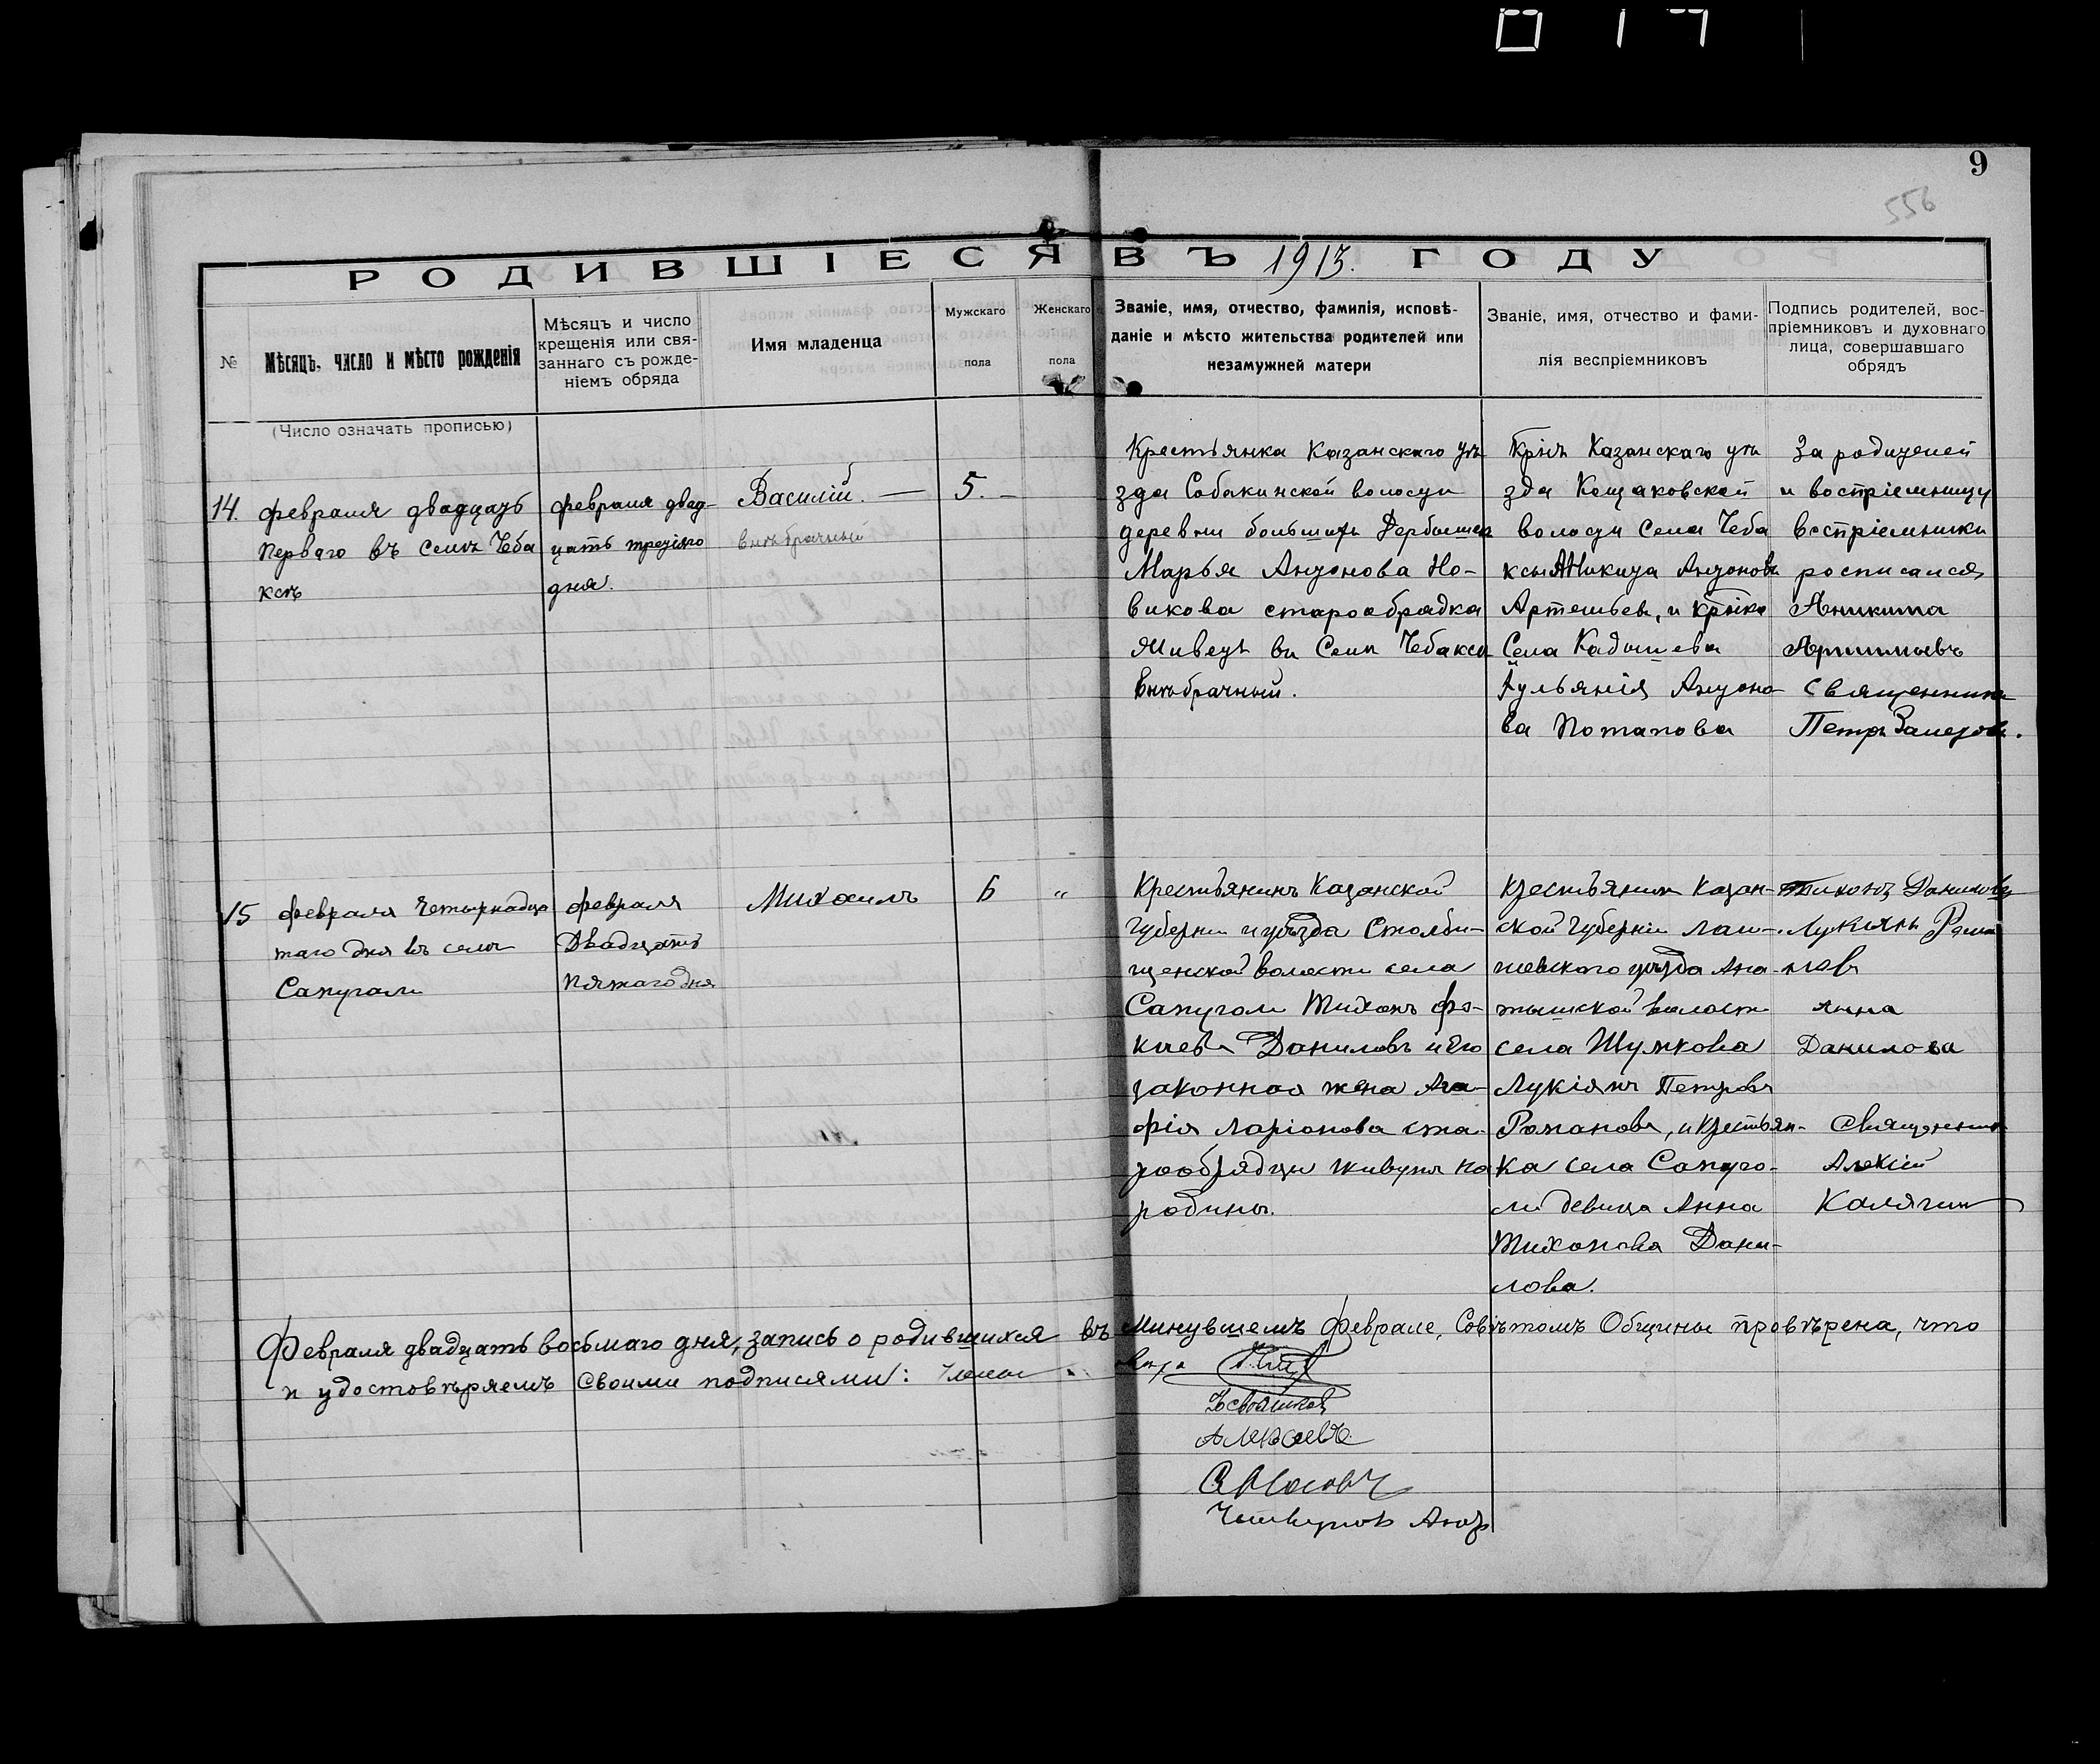 9
556
РОДИВШІЕСЯ ВЪ 1913. ГОДУ
№
Мѣсяцъ, число и мѣсто рожденія
(Число означать прописью)
Мѣсяцъ и число
крещенія или свя-
заннаго съ рожде-
ніемъ обряда
Имя младенца
Мужскаго
пола
Женскаго
пола
Званіе, имя, отчество, фамилія, исповѣ-
даніе и мѣсто жительства родителей или
незамужней матери
Званіе, имя, отчество и фами-
лія веспріемниковъ
Подпись родителей, вос-
пріемниковъ и духовнаго
лица, совершавшаго
обрядъ
14.
февраля двадцать
перваго въ селѣ Чеба
ксѣ
февраля двад-
цать третіяго
дня.
Василій. —
внѣбрачный
5. –
Крестьянка Казанскаго уѣ
зда Собакинской волости
деревни большихъ Дербышек
Марья Антонова Но-
викова старообрядка
живетъ въ Селѣ Чебакса
внѣбрачный.
Крнъ Казанскаго уѣ
зда Кощаковской
волости Села Чеба
ксы Аникита Антоновъ
Артемьев, и крѣка
Села Кадышева
Іульянія Антоно-
ва Потапова
За родителей
и воспріемницу
воспріемники
росписался
Аникита
Артемьевъ
Священника
Петръ Залетовъ.
15
февраля четырнадца
таго дня въ селѣ
Сапугали
февраля
Двадцать
пятаго дня
Михаилъ
6
"
Крестьянинъ Казанской
губерніи и уѣзда Столби-
щенской волости села
Сапуголи Тихонъ Фо-
кіевъ Даниловъ и его
законная жена Ага-
фія Ларіонова ста-
рообрядцы живутъ на
родины.
Крестьянинъ Казан-
ской Губерніи Лаи-
шевскаго уѣзда Ана-
тышской волости
села Шумкова
Лукіянъ Петровъ
Романовъ, и крестьян-
ка села Сапуго-
ли девица Анна
Тихонова Дани-
лова.
Тихонъ Даниловъ
Лукіянъ Рома
новъ
Анна
Данилова
Священникъ
Алексій
Калягин
Февраля двадцать восьмаго дня, запись о родившихся въ минувшемъ Феврале, Совѣтомъ Общины провѣрена, что
и удостовѣряемъ своими подписями: Члены
Алексеевъ